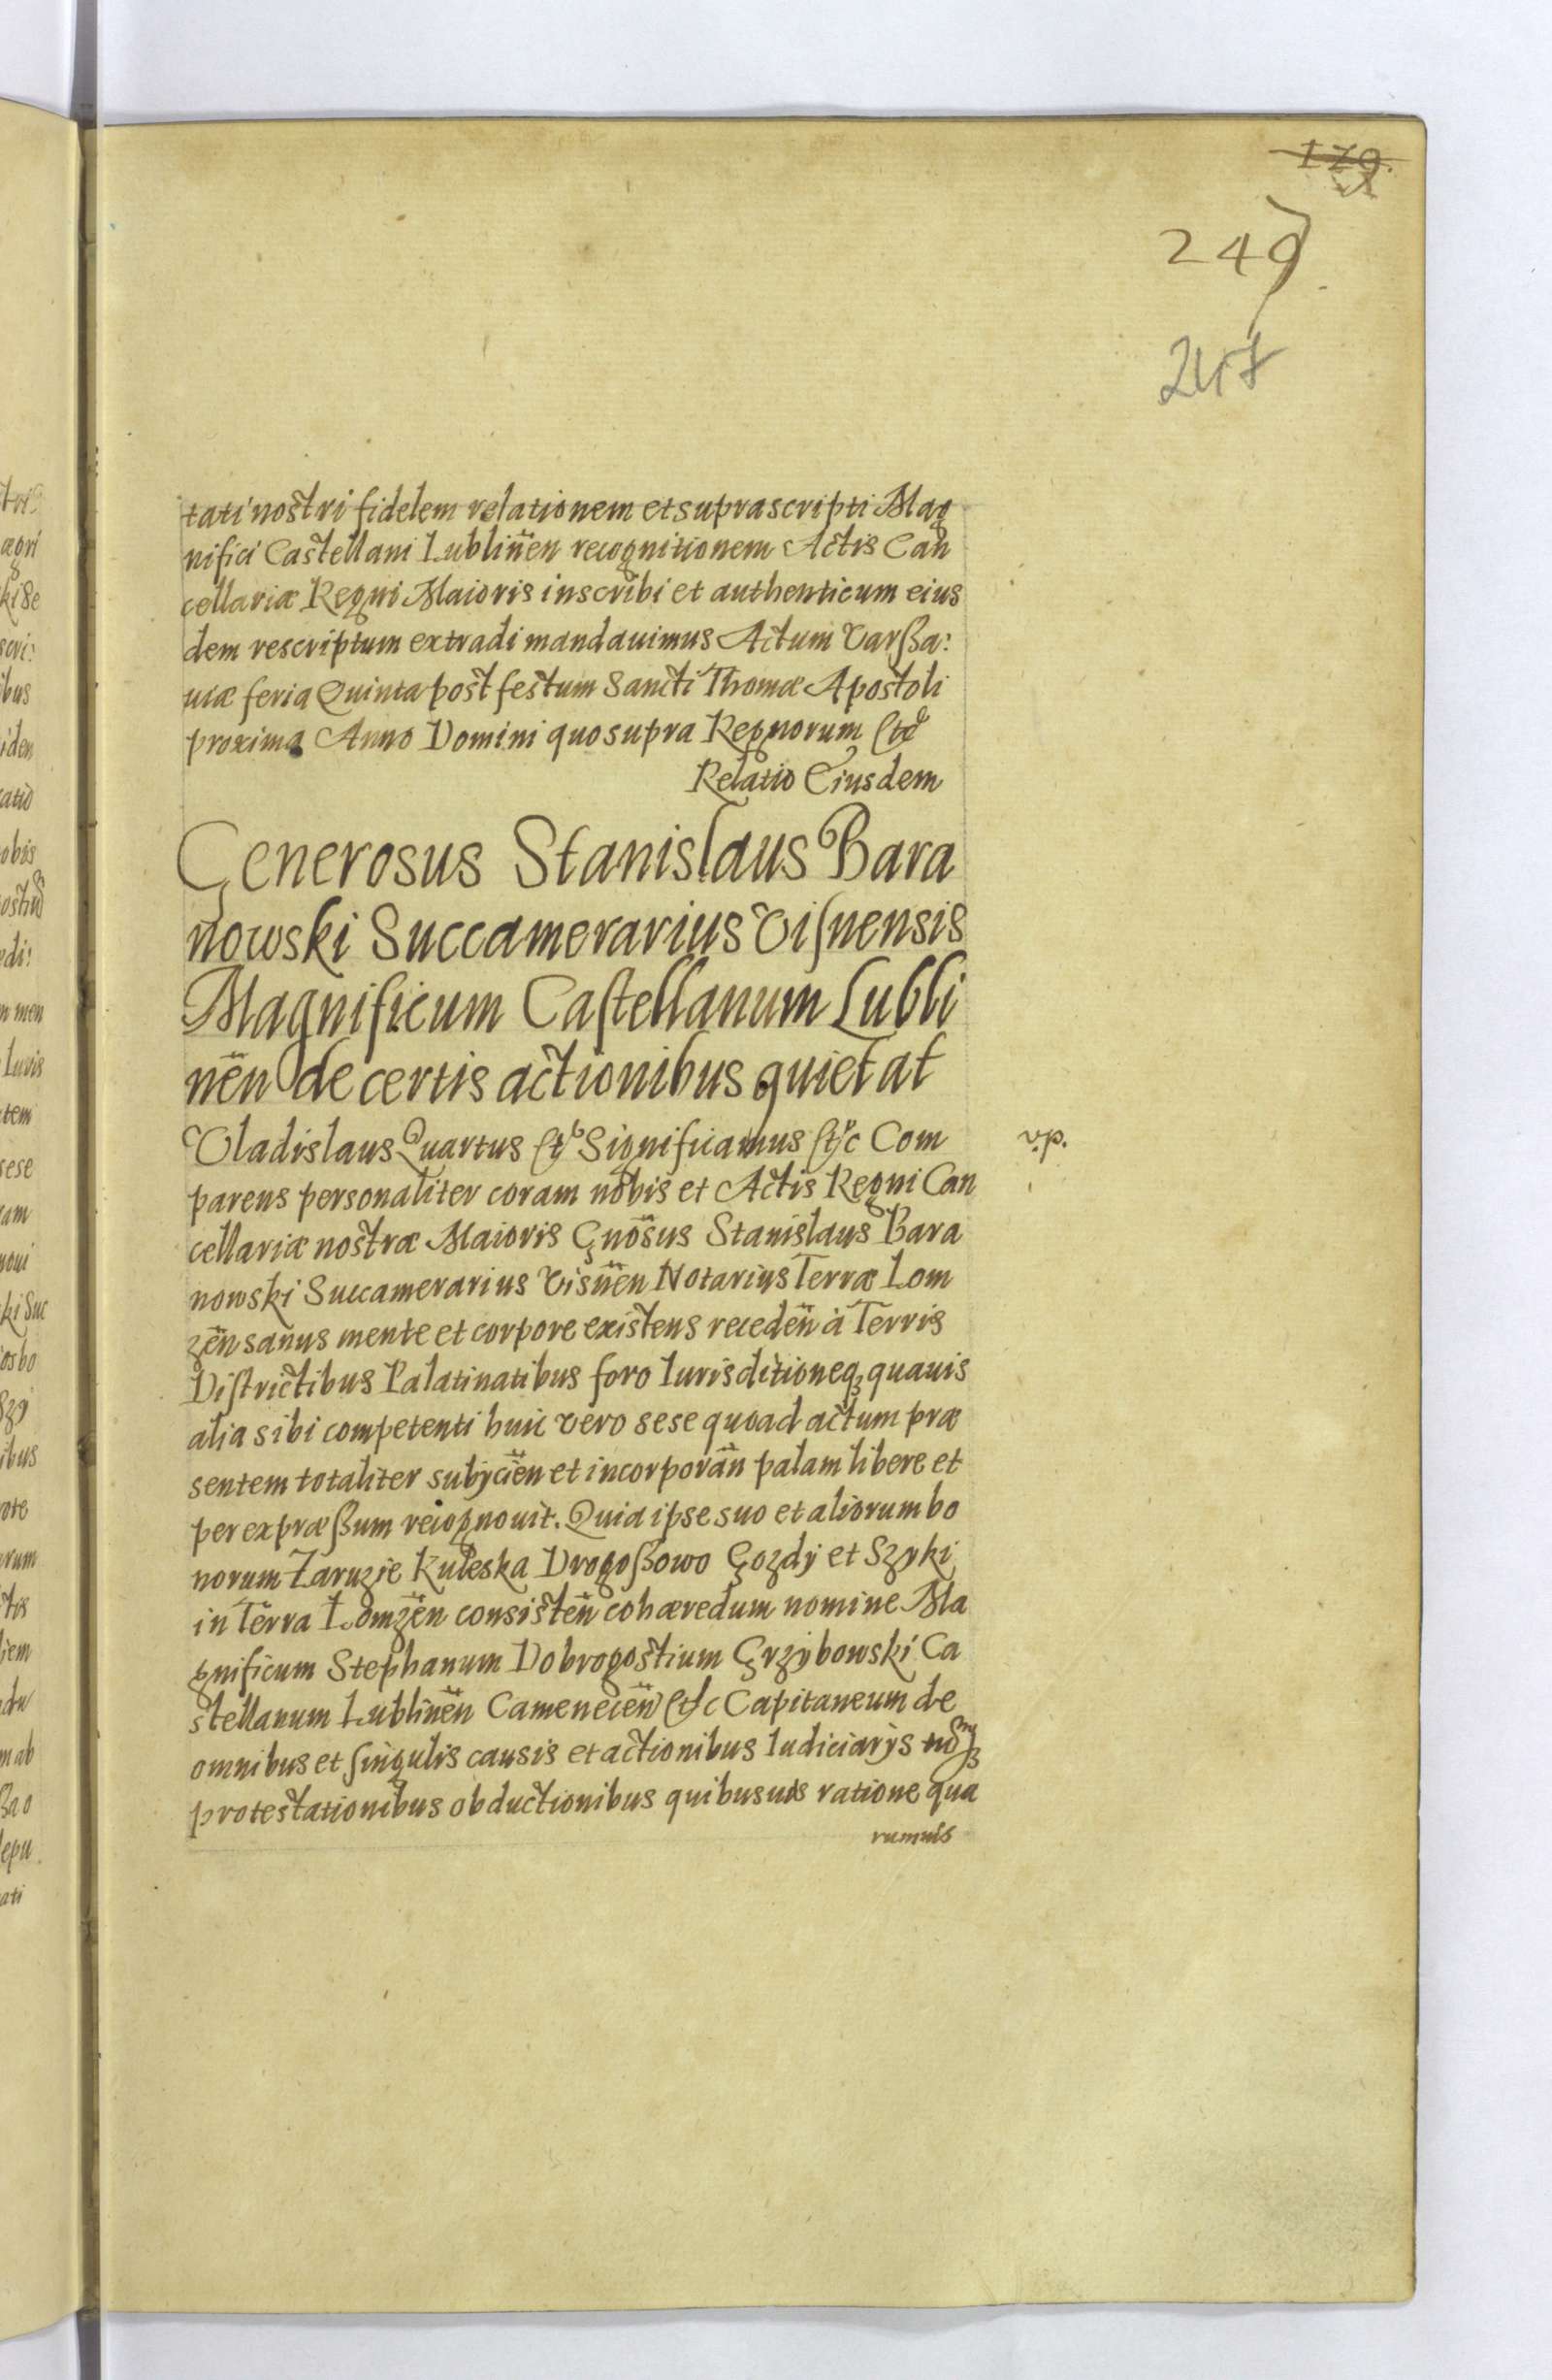 179.
249
247
tati nostri fidelem relationem et suprascripti Mag
nifici Castellani Lublinen̄ recognitionem Actis Can
cellariæ Regni Maioris inscribi et authenticum eius
dem rescriptum extradi mandauimus Actum Varßa:
uiæ feria Quinta post festum Sancti Thomæ Apostoli
proxima Anno Domini quo supra Regnorum Etc
Relatio Eiusdem
Generosus Stanislaus Bara
nowski Succamerarius Visnensis
Magnificum Castellanum Lubli
nen̄ de certis actionibus quietat
Vladislaus Quartus Etc Significamus Etc Com
v.p.
parens personaliter coram nobis et Actis Regni Can
cellariæ nostræ Maioris Gn̄osus Stanislaus Bara
nowski Succamerarius Visnen̄ Notarius Terræ Lom
zen̄ sanus mente et corpore existens receden̄ à Terris
Districtibus Palatinatibus foro Iurisditioneq; quauis
alia sibi competenti huic vero sese quoad actum præ
sentem totaliter subijcien̄ et incorporan̄ palam libere et
per expræßum recognouit. Quia ipse suo et aliorum bo
norum Zaruzie Kuleska Drogoßowo Gozdy et Szyki
in Terra Lomzen̄ consisten̄ cohæredum nomine Ma
gnificum Stephanum Dobrogostium Grzybowski Ca
stellanum Lublinen̄ Camenecen̄ Etc Capitaneum de
omnibus et singulis causis et actionibus Iudiciarijs
protestationibus obductionibus quibusuis ratione qua
rumuis